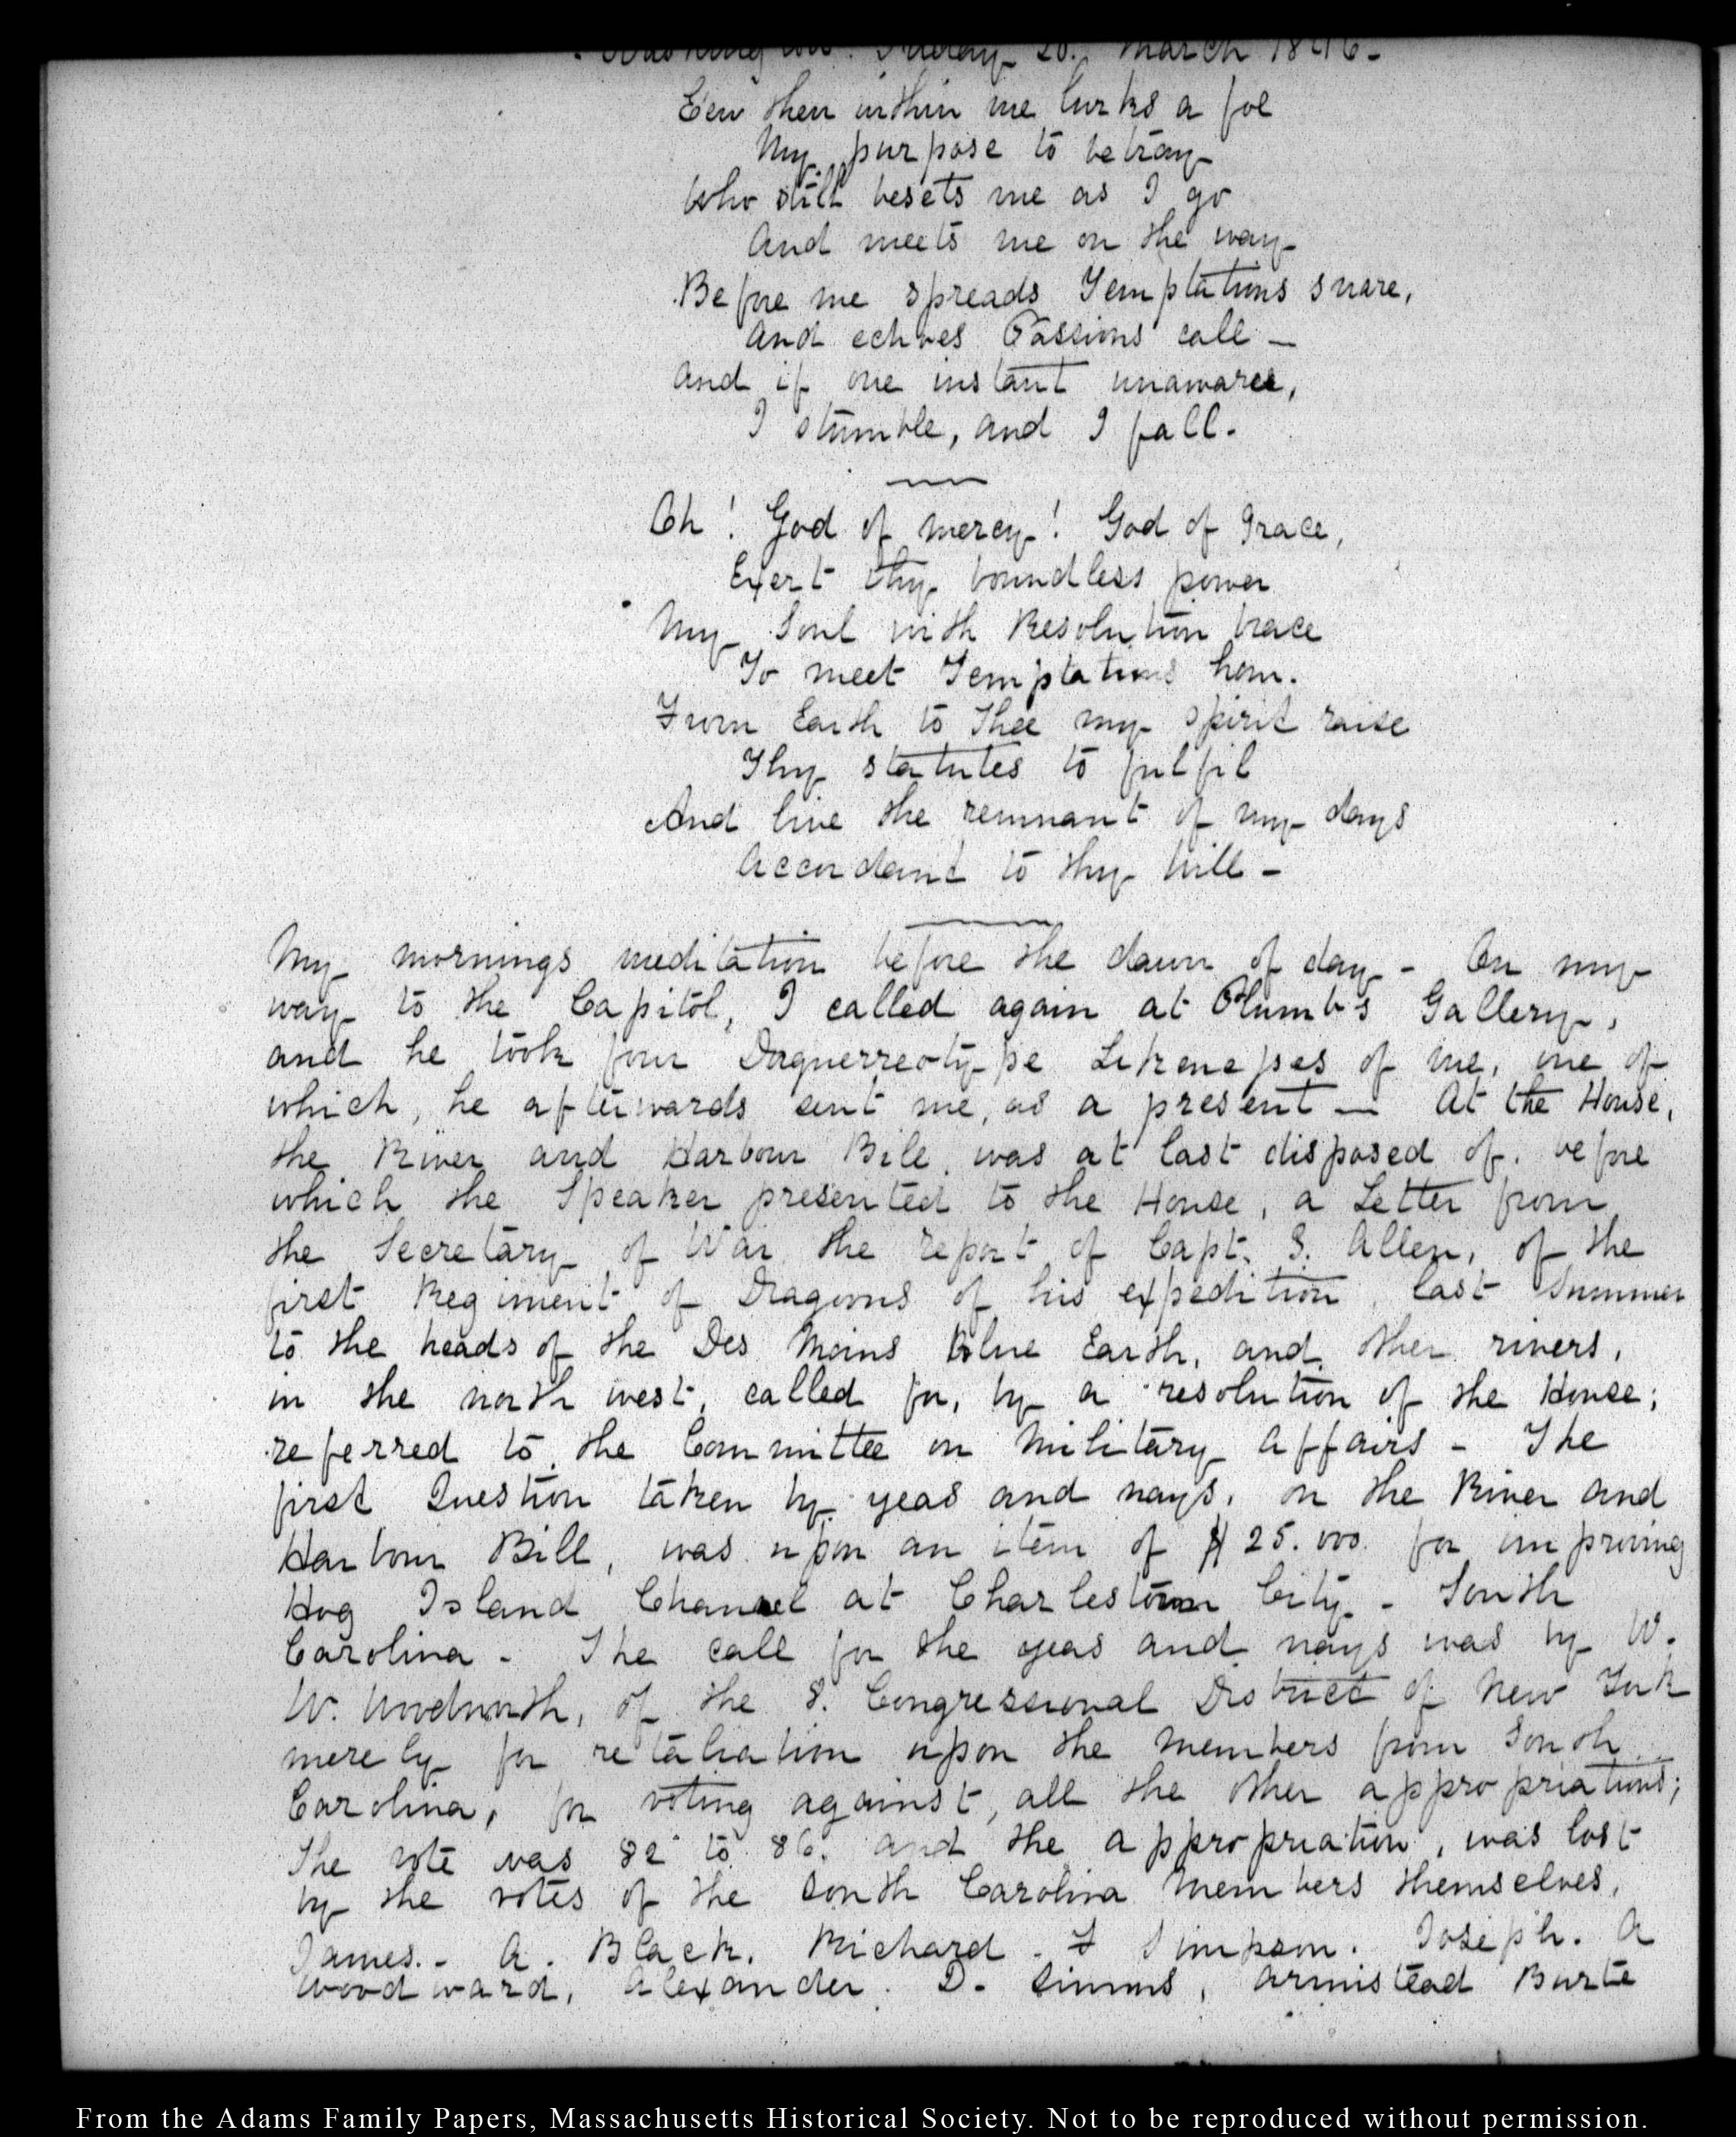 Washington. Friday 20. March 1846-
E'en then within me lurks a foe
My purpose to betray
Who still besets me as I go
And meets me on the way
Before me spreads Temptations snare,
And echoes Passions call —
And if one instant unaware,
I stumble, and I fall.
Oh! God of mercy! God of Grace,
Exert thy boundless power
My Soul with Resolution brace
To meet Temptations hour.
From Earth to Thee my spirit raise
Thy statutes to fulfil
And live the remnant of my days
Accordant to thy Will -
My mornings meditation before the dawn of day - On my
way to the Capitol, I called again at Plumb's Gallery,
and he took four Daguerreotype Likenesses of me, one of
which, he afterwards sent me, as a present — At the House,
the River and Harbour Bill, was at last disposed of. before
which the Speaker presented to the House, a Letter from
the Secretary of War the report of Capt. S. Allen, of the
first Regiment of Dragoons of his expedition, last Summer
to the heads of the Des Moins Blue Earth, and other rivers,
in the north west, called for, by a resolution of the House;
referred to the Committee on Military Affairs - The
first Question taken by yeas and nays, on the River and
Harbour Bill, was upon an item of $25.000 for improving
Hog Island Channel at Charlestown City - South
Carolina - The call for the yeas and nays was by W.
W. Woodworth, of the 8. Congressional District of New York
merely for retaliation upon the members from South
Carolina, for voting against, all the other appropriations;
The vote was 82 to 86. and the appropriation, was lost
by the votes of the South Carolina Members themselves,
James.- A. Black, Richard - F Simpson. Joseph. A
Woodward, Alexander. D. Simms, Armistead Burte
From the Adams Family Papers, Massachusetts Historical Society. Not to be reproduced without permission.